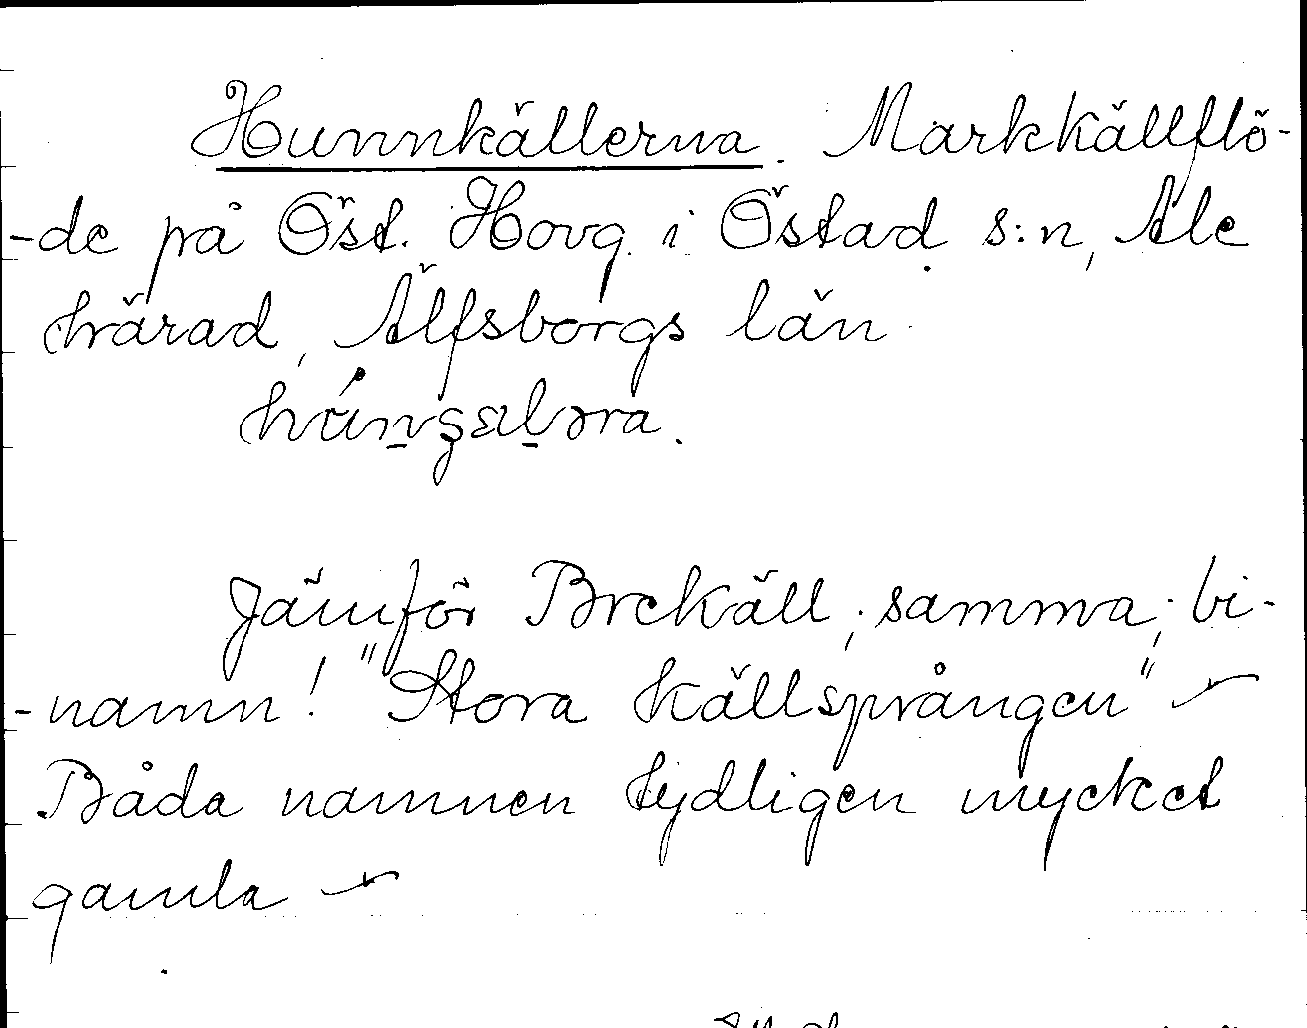 Hunnkällerna. Markkällflö-
-de på Öst. Hovg. i Östad s:n, Ale
härad, Älfsborgs län.

Jämför Brekäll; samma; bi-
-namn! "Stora källsprången" –
Båda namnen tydligen mycket
gamla –